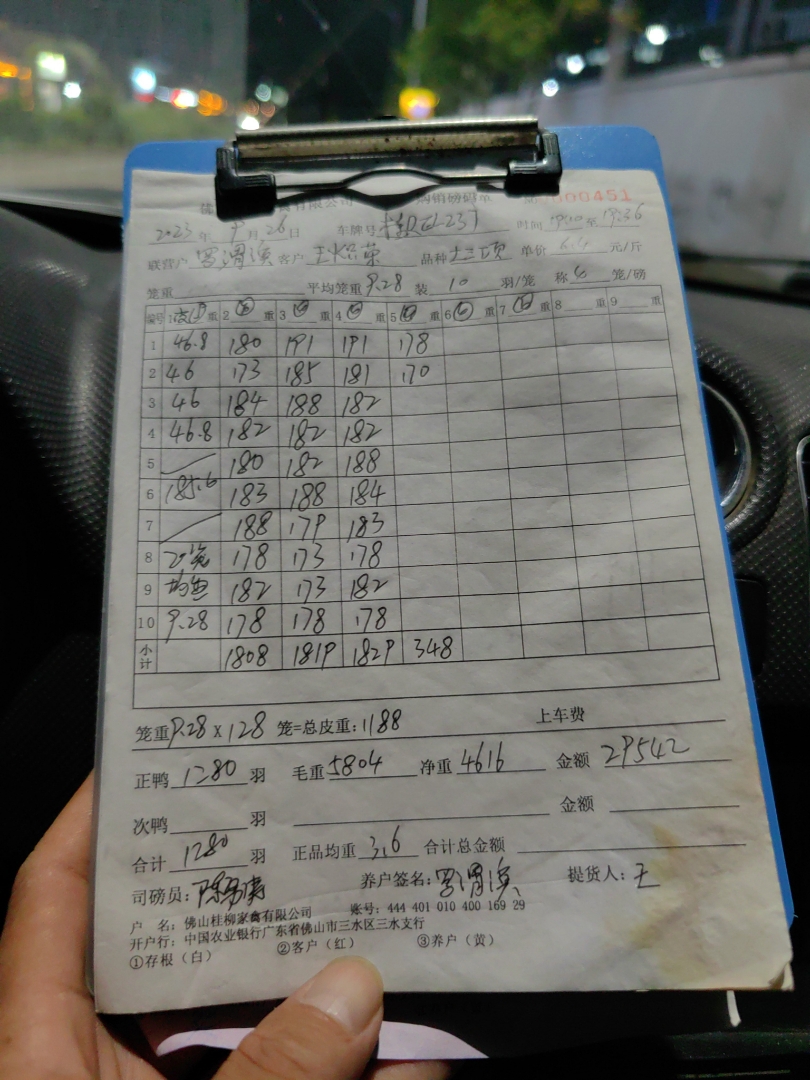 有限公司 购销磅码单 0000451
2023年 9月26日 车牌号 时间 19:00至19:36
联营户 罗渭滨 客户 王 荣 品种 单价 6.4 元/斤
笼重 平均笼重 9.28 装 10 羽/笼 称 4 笼/磅
编号 1 重 2 重 3 重 4 重 5 重 6 重 7 重 8 重 9 重
1 46.8 180 191 191 178
2 46 173 185 181 170
3 46 184 188 182
4 46.8 182 182 182
5 180 182 188
6 185.6 183 188 184
7 188 179 183
8 20笼 178 173 178
9 均重 182 173 182
10 9.28 178 178 178
小计 1808 1819 1829 348
笼重 9.28 x 128 笼=总皮重: 1188 上车费
正鸭 1280 羽 毛重 5804 净重 4616 金额 29542
次鸭 羽 金额
合计 1280 羽 正品均重 3.6 合计总金额
司磅员: 养户签名: 罗渭滨 提货人: 王
户 名: 佛山桂柳家禽有限公司 账号: 444 401 010 400 169 29
开户行: 中国农业银行广东省佛山市三水区三水支行
①存根(白) ②客户(红) ③养户(黄)